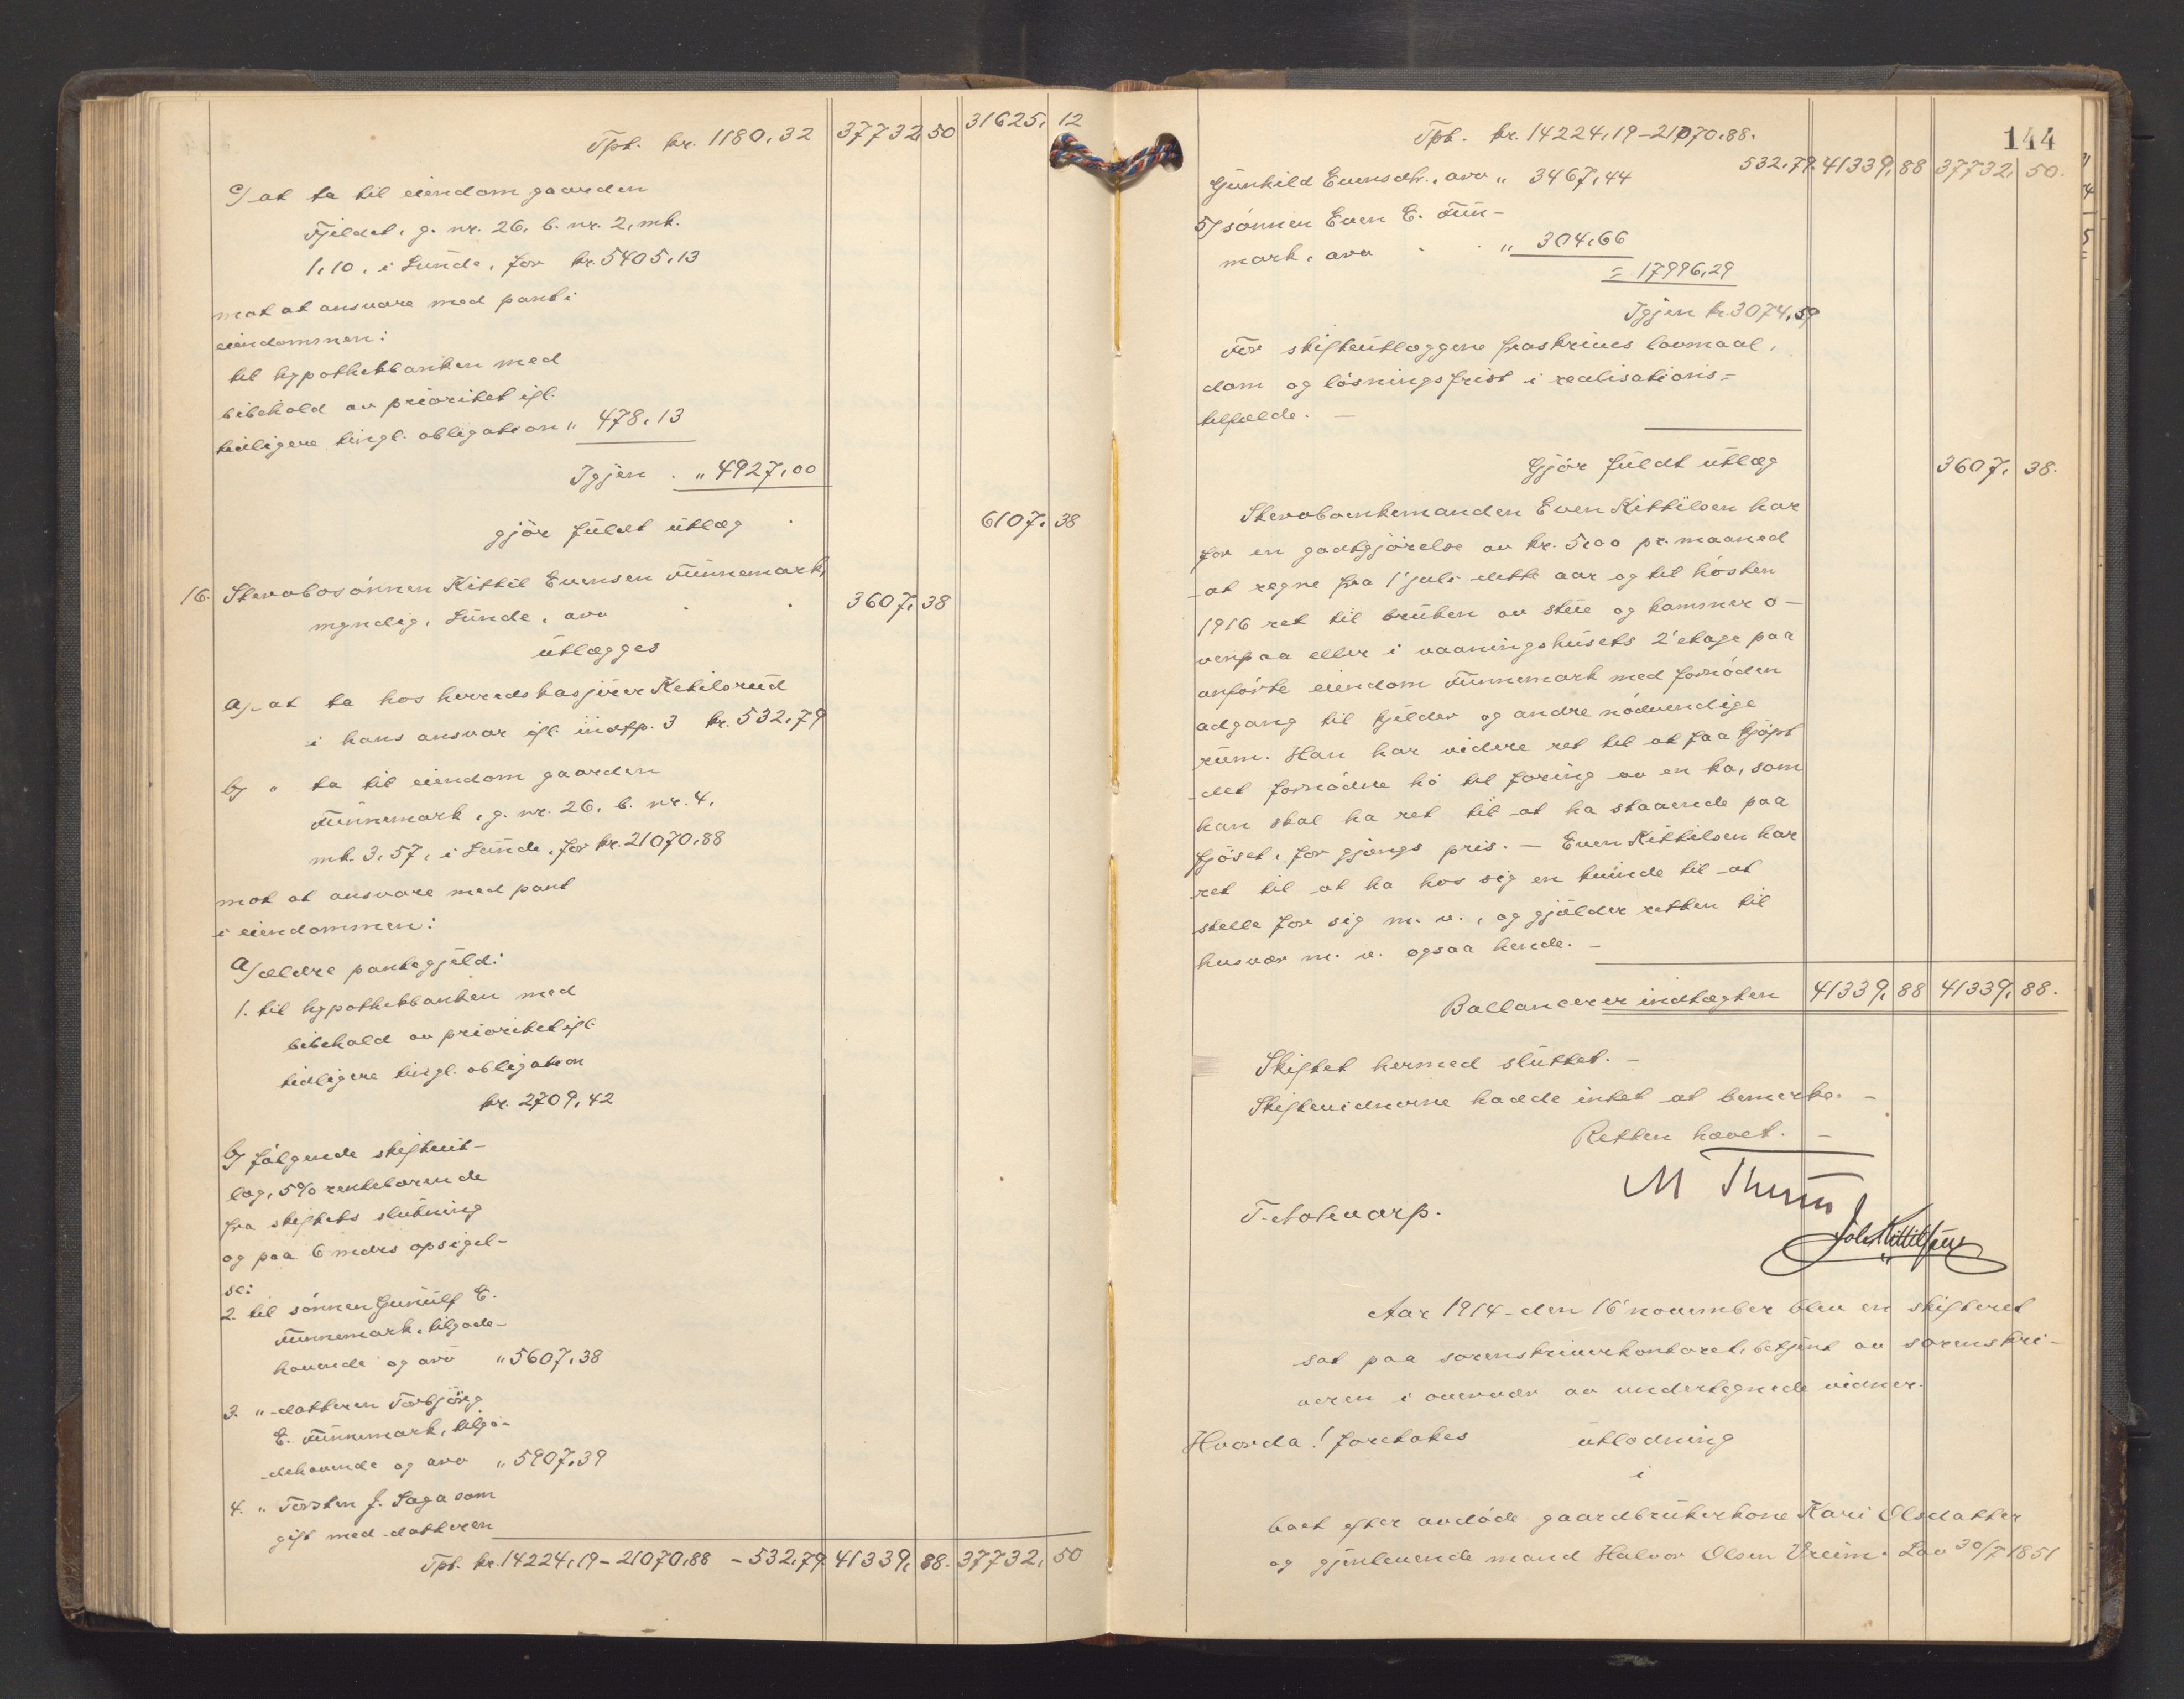 Tpt. kr. 1180,32 37732,50 31625,12
c/ at ta til eiendom gaarden
Fjeldet, g. nr. 26, b. nr. 2, mk.
1,10, i Lunde, for kr. 5405,13
mot at ansvare med pant i
eiendommen:
til hypothekbanken med
bibehold av prioritet ifl.
tidligere tingl. obligation " 478,13
Igjen . " 4927,00
gjör fuldt utlæg . 6107,38
16. Stervbosönnen Kittil Evensen Vinnemark,
myndig, Lunde, arv . . 3607,38
utlægges
a/ at ta hos herredskasjerer Ketilsrud
i hans ansvar ifl. indtp. 3 kr. 532,79
b/ " ta til eiendom gaarden
Vinnemark, g. nr. 26, b. nr. 4,
mk. 3,57, i Lunde, for kr. 21070,88
mot at ansvare med pant
i eiendommen:
a/ ældre pantegjæld:
1. til hypothekbanken med
bibehold av prioritet ifl.
tidligere tingl. obligation
kr. 2709,42
b/ følgende skifteut-
læg, 5% rentebærende
fra skiftets slutning
og paa 6 mdrs opsigel-
se:
2. til sönnen Gunulf E.
Vinnemark, tilgode-
havende og arv " 5607,38
3. " datteren Torbjörg
E. Vinnemark, tilgo-
dehavende og arv " 5907,39
4. " Torsten J. Saga som
gift med datteren
Tpt. kr. 14224,19 - 21070,88 - 532,79 41339,88. 37732,50
144
Tpt. kr. 14224,19 - 21070,88.
532,79. 41339,88 37732,50.
Gunhild Evensdtr., arv " 3467,44
5/ sönnen Even E. Vin-
mark, arv . . " 304,66
= 17996,29
Igjen kr. 3074,59
For skifteutlæggene fraskrives lovmaal,
dom og lösningsfrist i realisations-
tilfælde. -
Gjör fuldt utlæg 3607,38.
Stervboenkemanden Even Kittilsen har
for en godtgjörelse av kr. 5,00 pr. maaned
at regne fra 1' juli dette aar og til hösten
1916 ret til bruken av stue og kammer o-
venpaa eller i vaaningshusets 2' etage paa
anförte eiendom Vinnemark med fornöden
adgang til kjelder og andre nödvendige
rum. Han har videre ret til at faa kjöpt
det fornödne hö til foring av en ko, som
han skal ha ret til at ha staaende paa
fjöset, for gjængs pris. - Even Kittilsen har
ret til at ha hos sig en kvinde til at
stelle for sig m. v., og gjælder retten til
husvær m. v. ogsaa hende. -
Ballancerer indtægten 41339,88 41339,88.
Skiftet hermed sluttet. -
Skiftevidnerne hadde intet at bemerke. -
Retten hævet. -
M Thurm
T. Notevarp.
Joh. Kittilsen
Aar 1914 den 16' november blev en skifteret
sat paa sorenskriverkontoret, betjent av sorenskri-
veren i overvær av undertegnede vidner.
Hvorda! foretokes utlodning
i
boet efter avdöde gaardbrukerkone Kari Olsdatter
og gjenlevende mand Halvor Olsen Vreim. Lov 30/7 1851